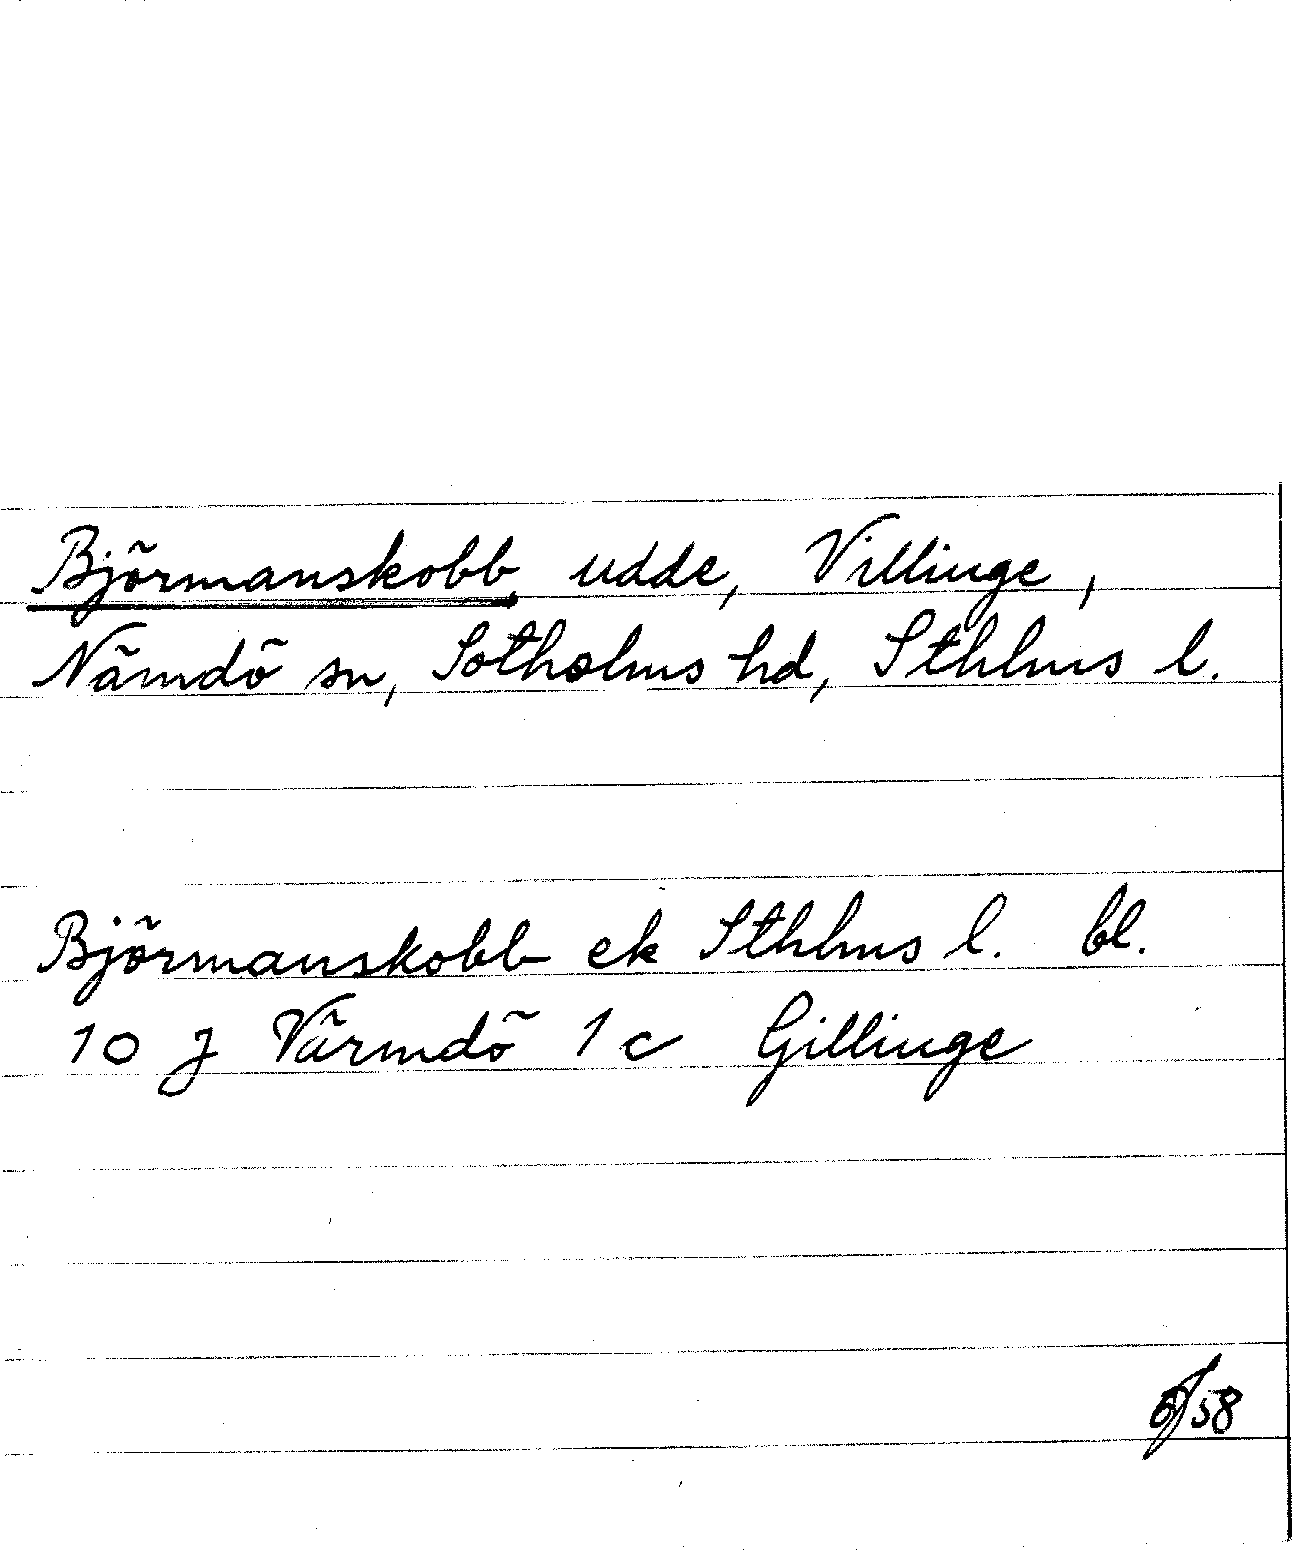 Björmanskobb, udde, Villinge,
Nämdö sn, Sotholms hd, Sthlms l.
Björmanskobb ek Sthlms l. bl.
10 J Värmdö 1c Gillinge